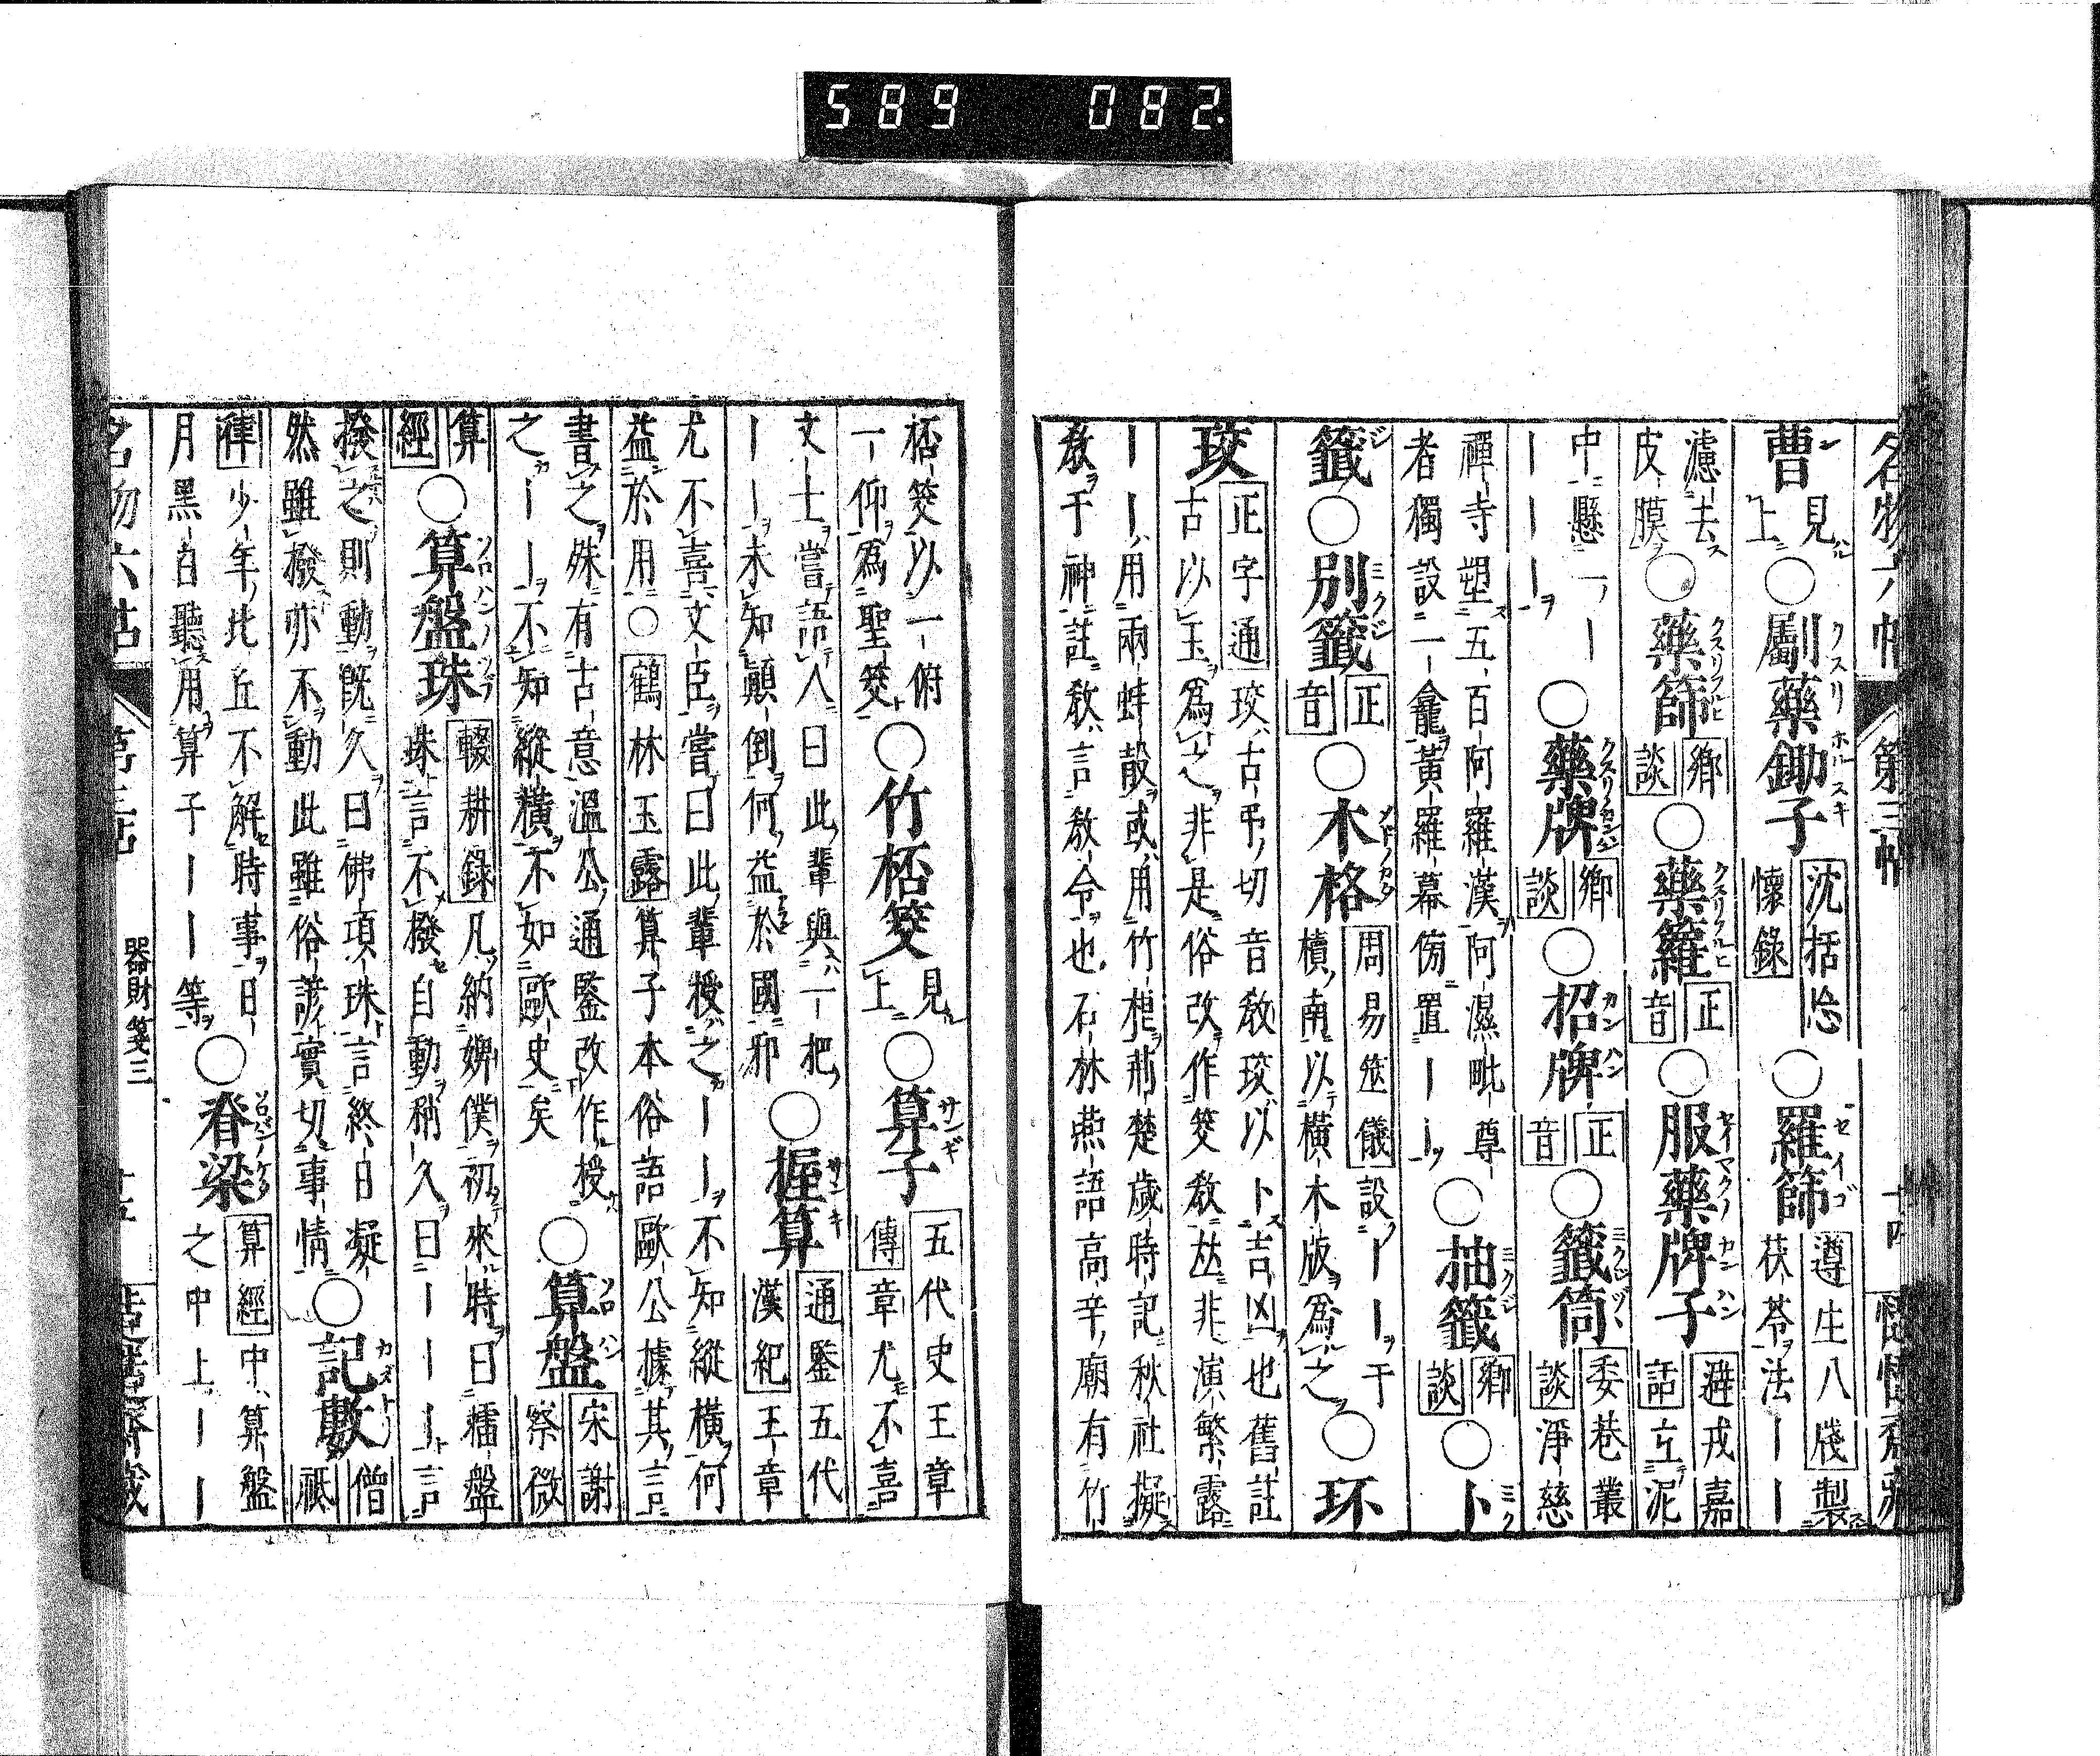 名物六帖 第三帖 十四 慥慥齋藏
曹 見上 ○劚藥鋤子 沈括忘懷錄 ○羅篩 遵生八牋 製茯苓法ーー
濾去皮膜 ○藥篩 鄉談 ○藥籮 正音 ○服藥牌子 避戎嘉話 立泥
中懸一ーーーー ○藥牌 鄉談 ○招牌 正音 ○籤筒 委巷叢談 淨慈
禪寺塑五百阿羅漢阿濕毗尊者獨設一龕黃羅幕傍置ーー ○抽籤 鄉談 ○卜
籤 ○別籤 正音 ○木格 周易筮儀 設ーー于櫝南以橫木版爲之 ○环
珓 正字通 珓古弔切音敎珓以卜吉凶也舊註古以玉爲之非是俗改作筊敎𠀤非演繁露
ーー用兩蚌殼或用竹根荊楚歲時記秋社擬敎于神註敎言敎令也石林燕語高辛廟有竹
桮筊以一俯一仰爲聖筊 ○竹桮筊 見上 ○算子 五代史王章傳 章尤不喜
文士嘗語人曰此輩與一把ーー未知顛倒何益於國邪 ○握算 通鑒五代漢紀 王章
尤不喜文臣嘗曰此輩授之ーー不知縱橫何益於用○鶴林玉露 算子本俗語歐公據其言
書之殊有古意溫公通鑒改作授之ーー不知縱橫不如歐史矣 ○算盤 宋謝察微
算經 ○算盤珠 輟耕錄 凡納婢僕初來時曰擂盤珠言不撥自動稍久曰ーーー言
撥之則動旣久曰佛項珠言終日凝然雖撥亦不動此雖俗諺實切事情 ○記數 僧祇
律 少年比丘不解時事日月黑白聽用算子ーーー等 ○脊梁 算經 中算盤之中上ーー
名物六帖 第三帖 器財箋三 十五 慥慥齋藏
589 082.